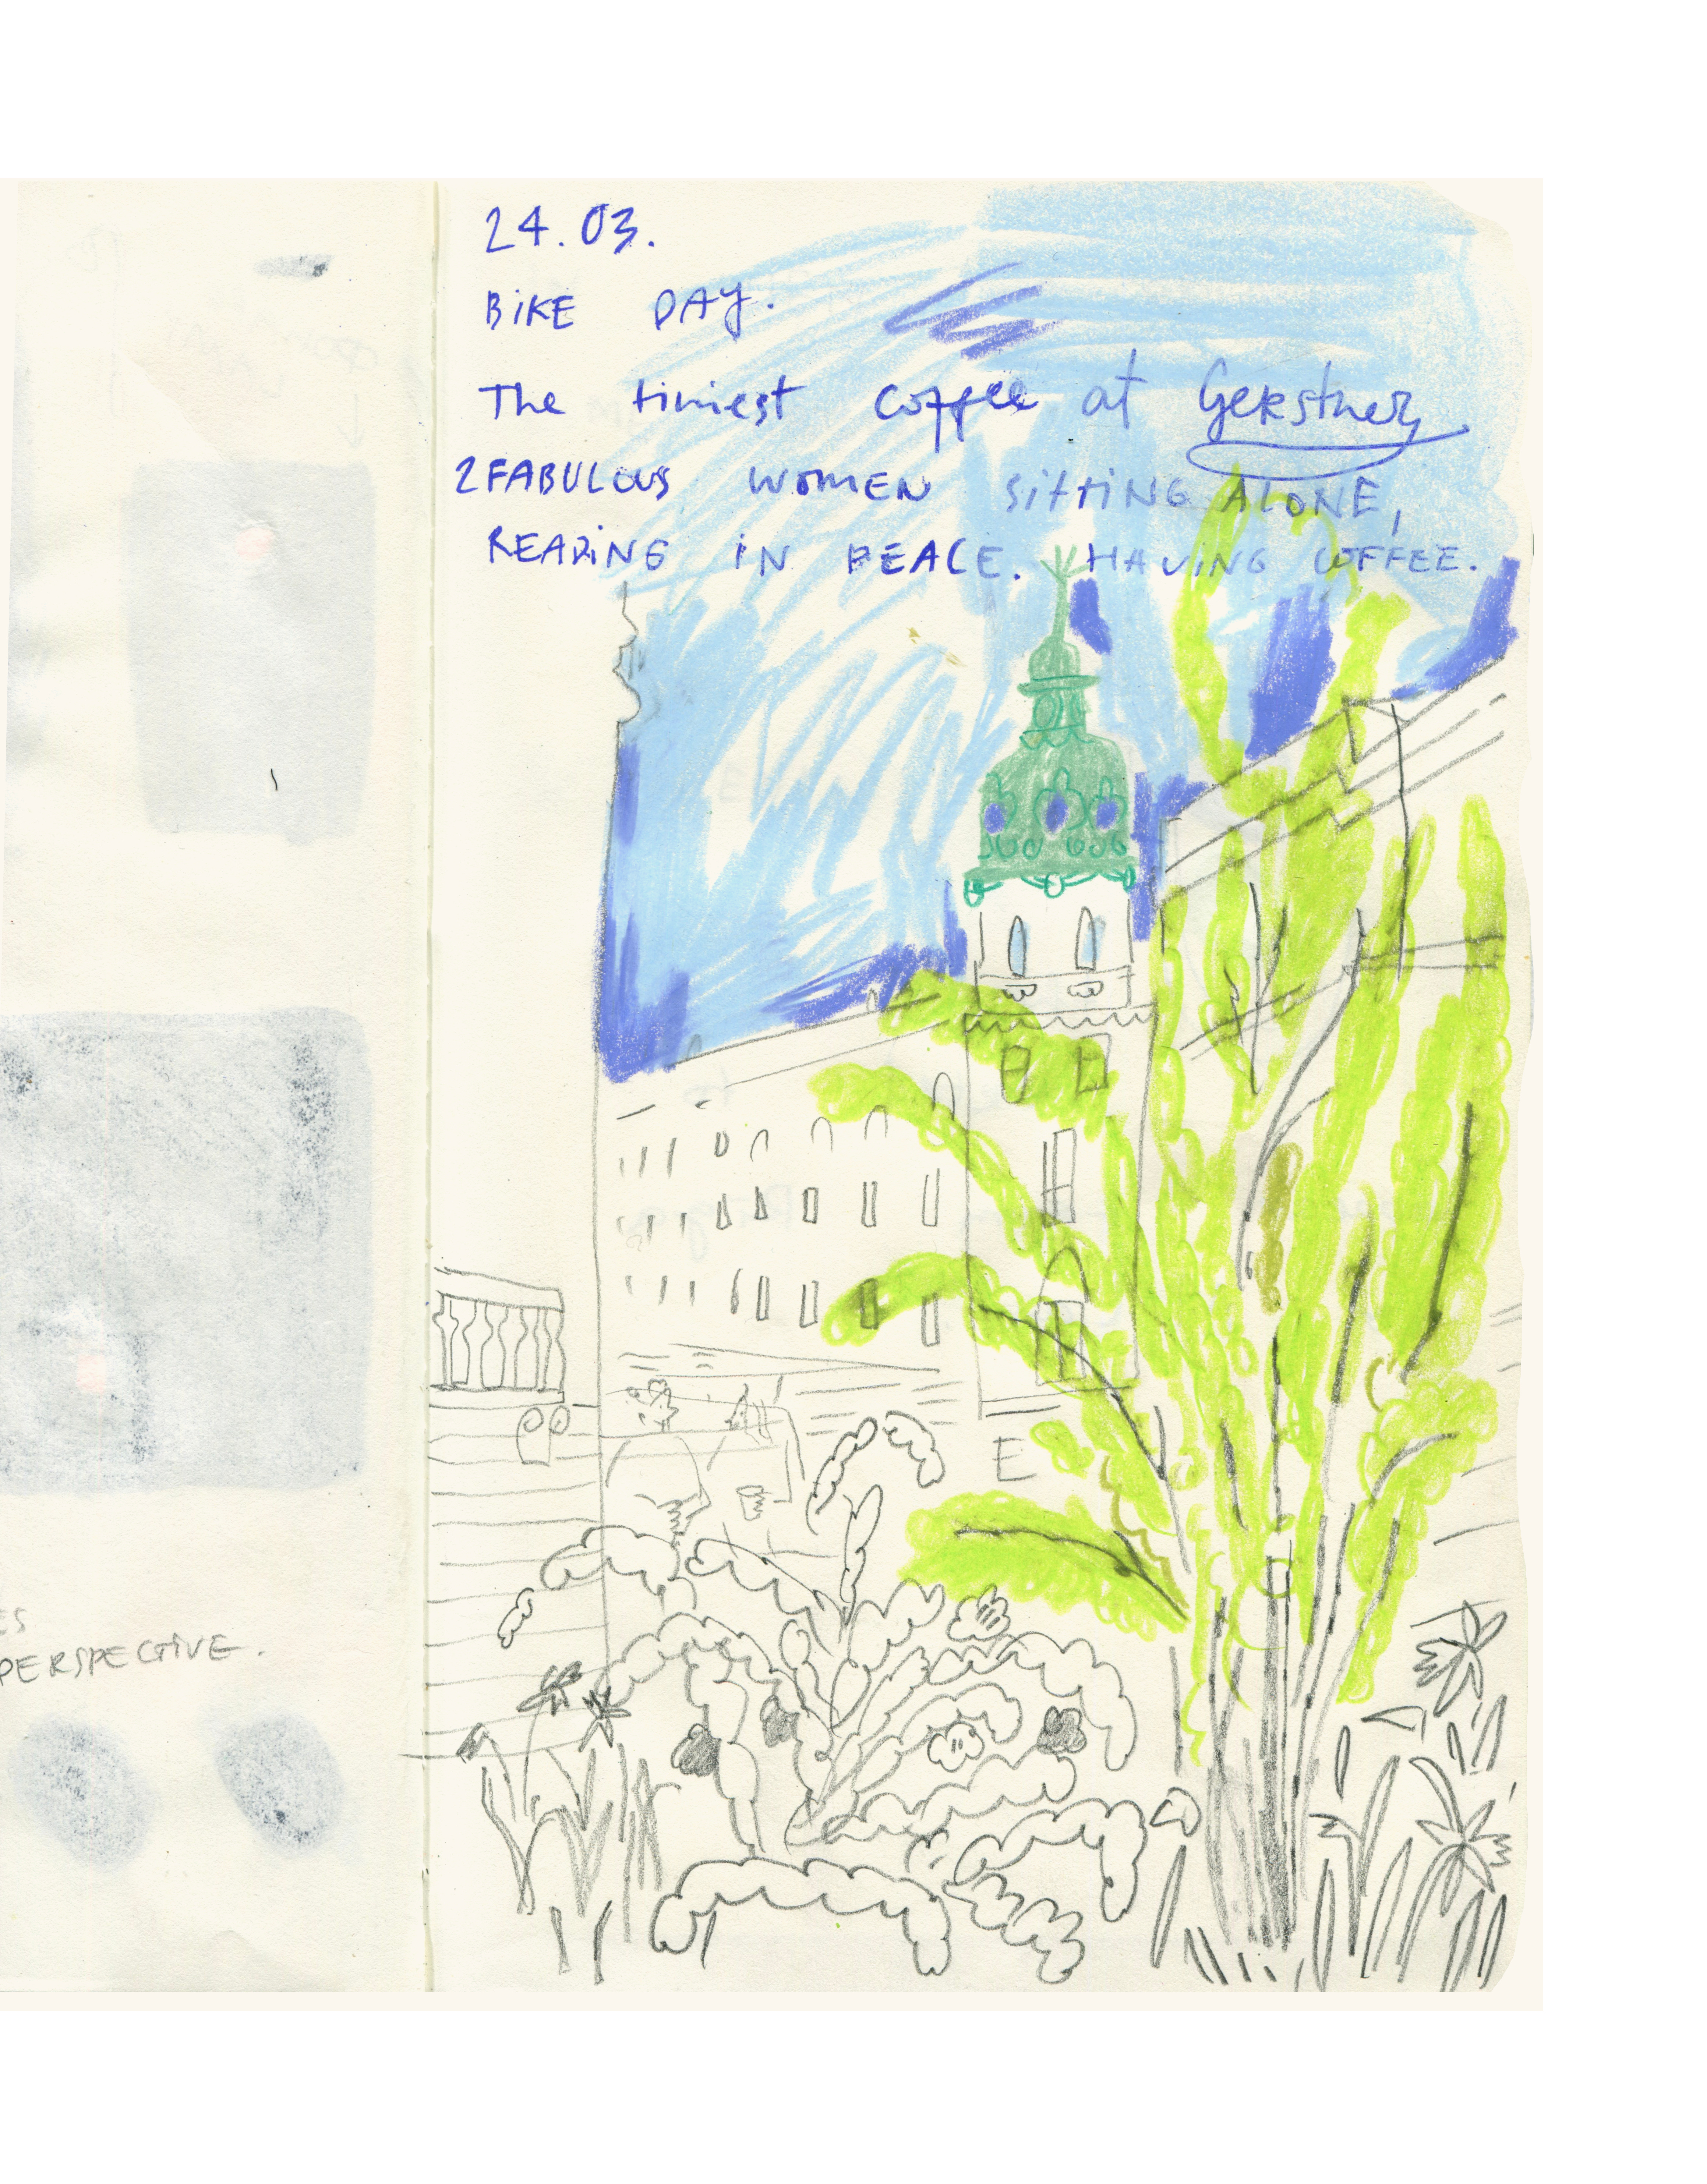 24.03.
BiKE DAY.
The tiniest coffee at Gerstner
2 FABULOUS WOMEN SiTTiNG ALONE,
READiNG iN PEACE. HAViNG COFFEE.
E
ES
PERSPECTiVE.